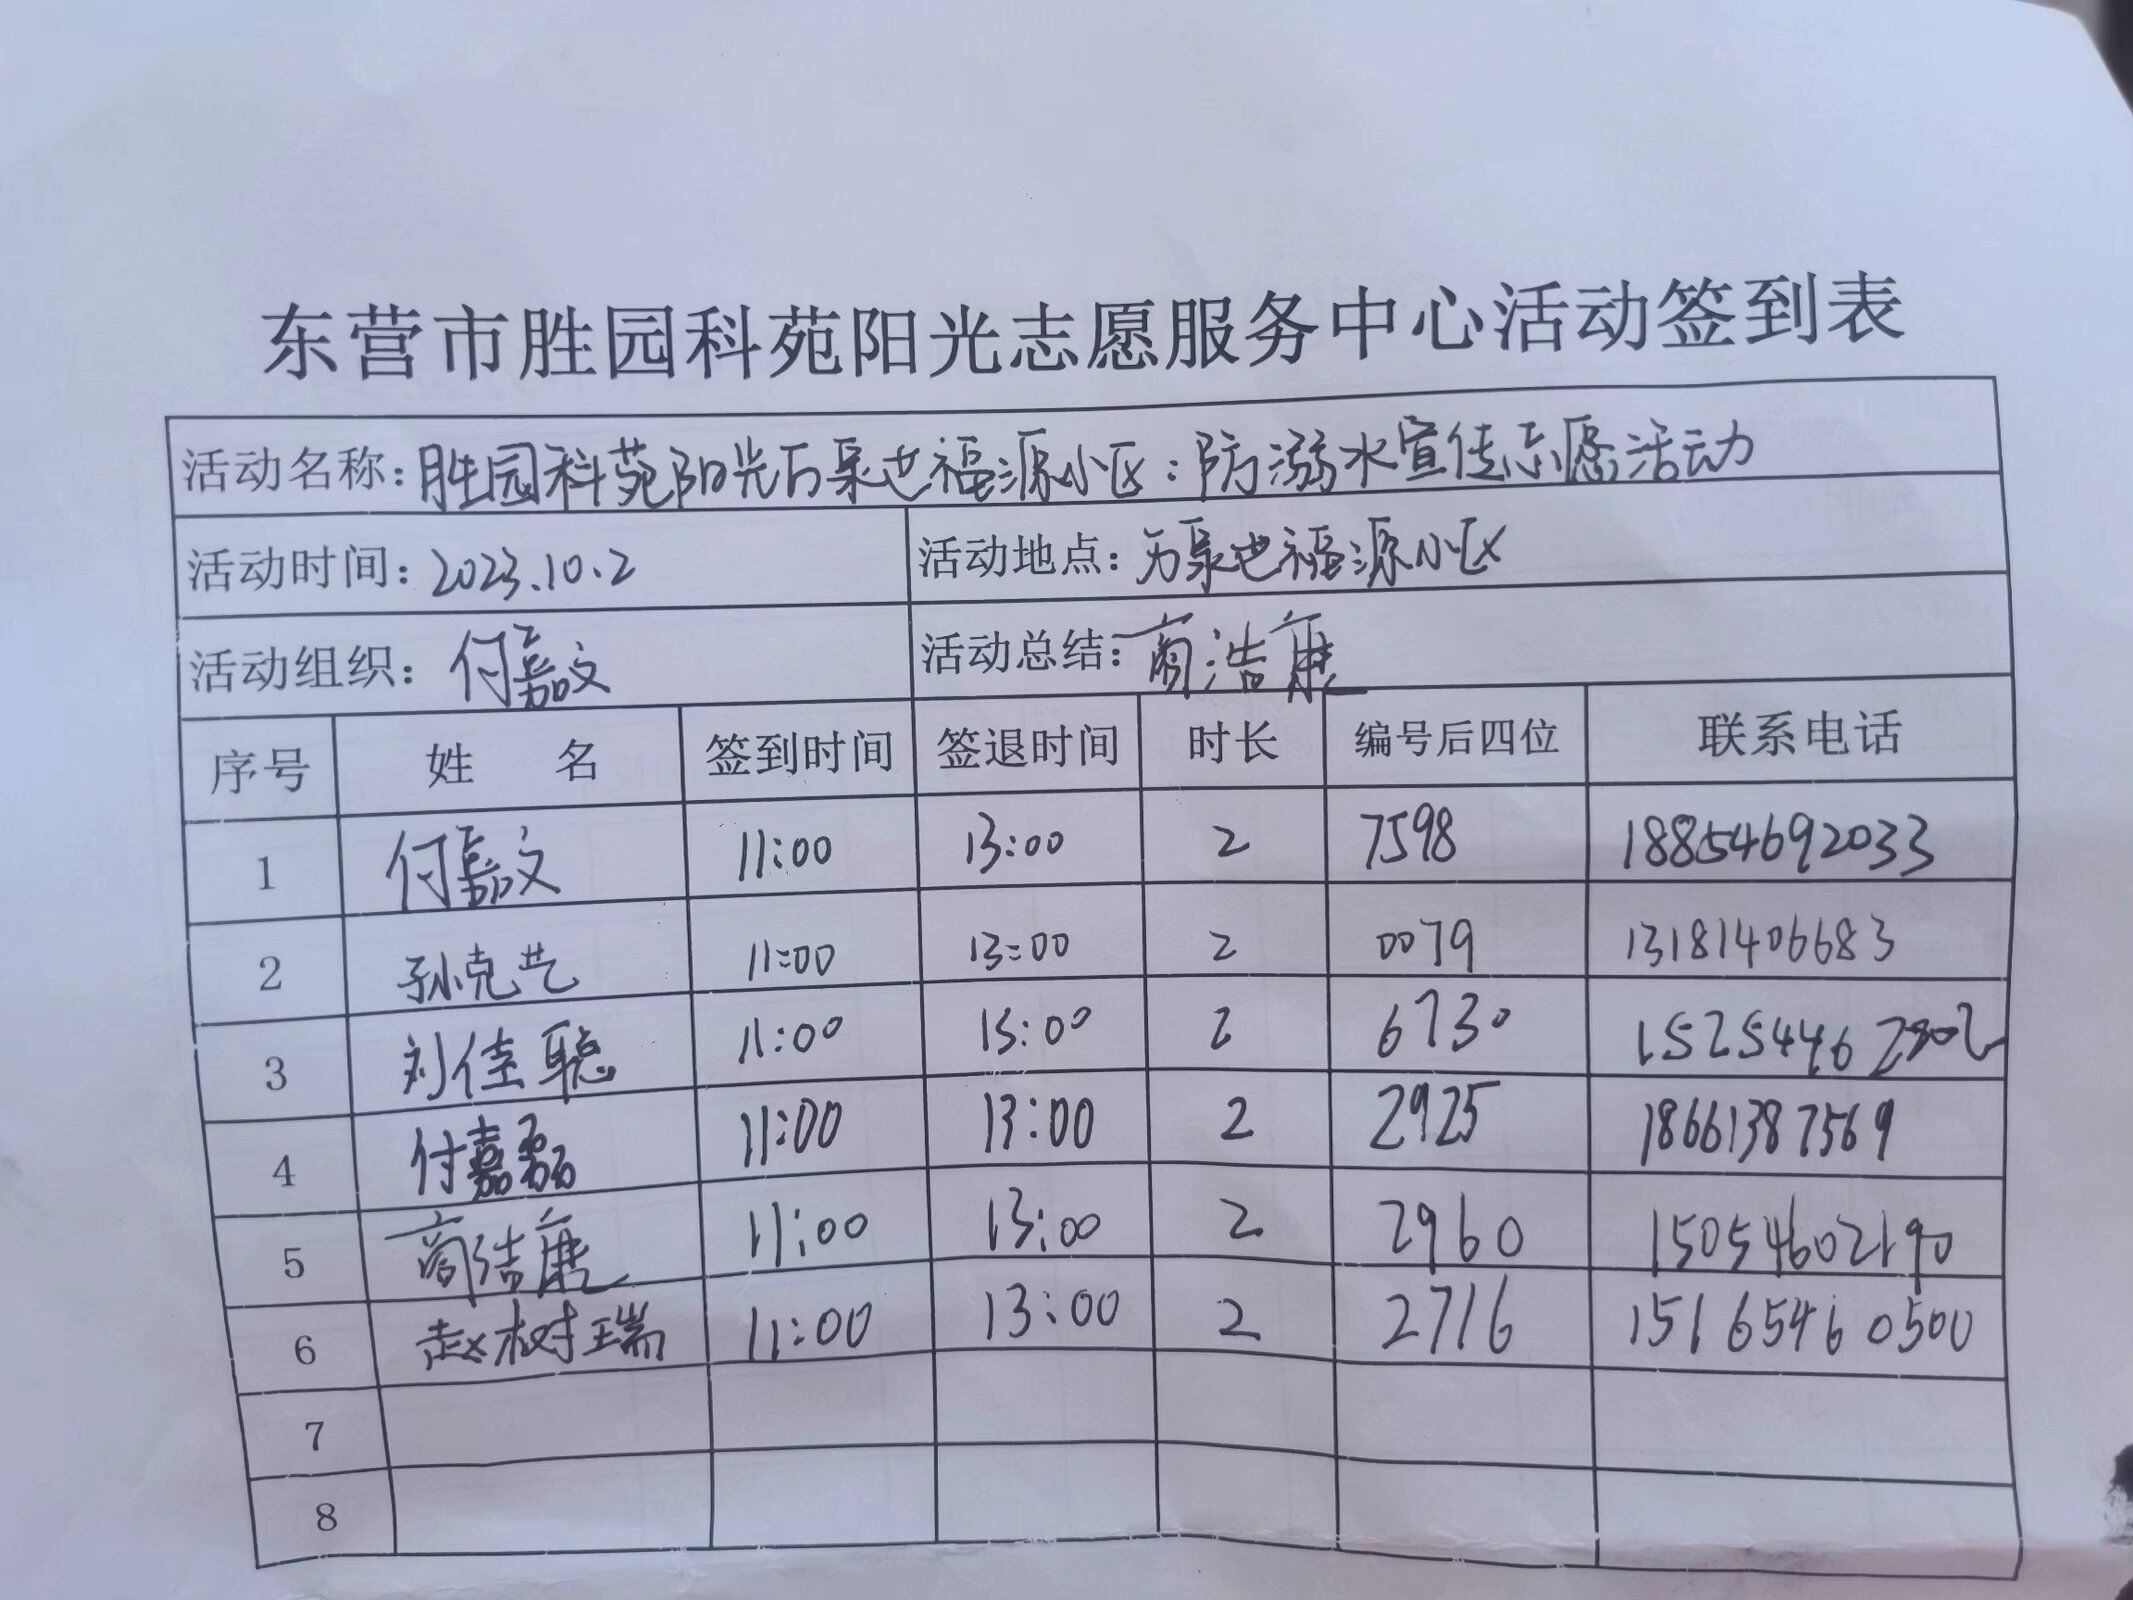 东营市胜园科苑阳光志愿服务中心活动签到表
活动名称：胜园科苑阳光万泉边福源小区：防溺水宣传志愿活动
活动时间：2023.10.2 活动地点：福源小区
活动组织：付嘉文 活动总结：商浩康
序号 姓 名 签到时间 签退时间 时长 编号后四位 联系电话
1 付嘉文 11:00 13:00 2 7598 18854692033
2 孙克艺 11:00 13:00 2 0079 13181406683
3 刘佳聪 11:00 13:00 2 6730 15254462802
4 付嘉磊 11:00 13:00 2 2925 18661387569
5 商浩康 11:00 13:00 2 2960 15054602190
6 赵树瑞 11:00 13:00 2 2716 15165460500
7
8